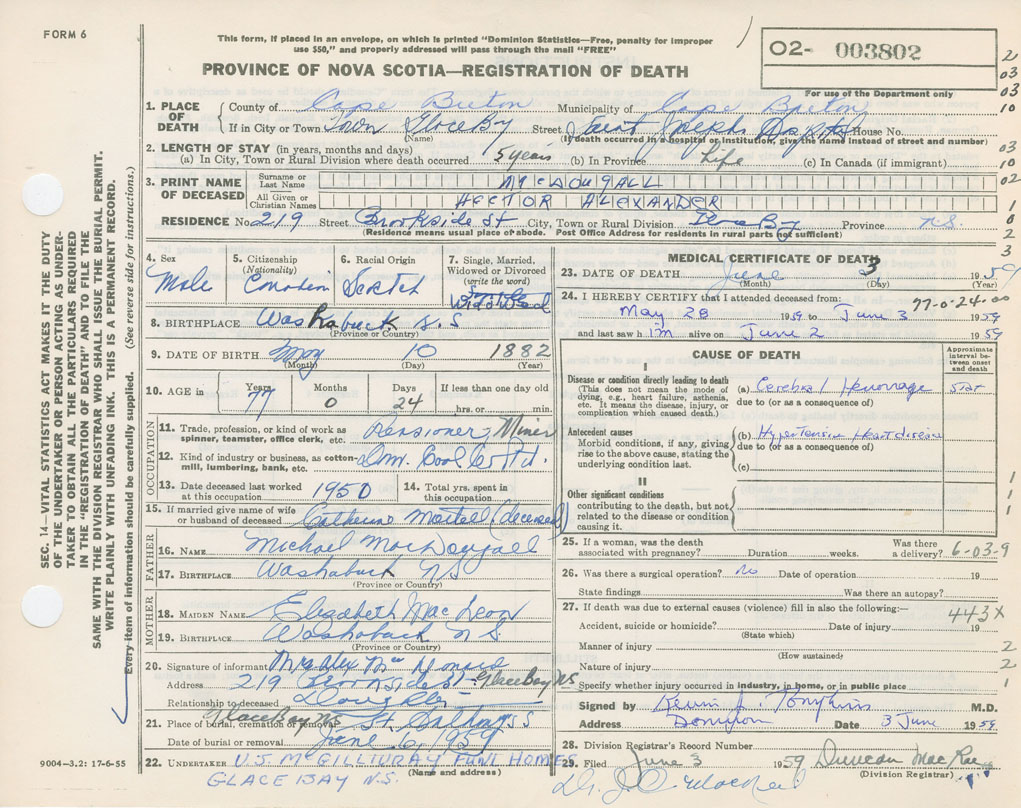 FORM 6
This form, if placed in an envelope, on which is printed "Dominion Statistics—Free, penalty for improper
use $50," and properly addressed will pass through the mail "FREE"
02- 003802
For use of the Department only
PROVINCE OF NOVA SCOTIA—REGISTRATION OF DEATH
2
03
03
10
03
10
02
1
0
2
3
SEC. 14—VITAL STATISTICS ACT MAKES IT THE DUTY
OF THE UNDERTAKER OR PERSON ACTING AS UNDER-
TAKER TO OBTAIN ALL THE PARTICULARS REQUIRED
IN THE "REGISTRATION OF DEATH" AND TO FILE THE
SAME WITH THE DIVISION REGISTRAR WHO SHALL ISSUE THE BURIAL PERMIT.
WRITE PLAINLY WITH UNFADING INK. THIS IS A PERMANENT RECORD.
Every item of information should be carefully supplied. (See reverse side for instructions.)
1. PLACE OF DEATH
County of Cape Breton Municipality of Cape Breton
If in City or Town Town Glace Bay Street Saint Josephs Hospital House No.
(Name) (If death occurred in a hospital or institution, give the name instead of street and number)
2. LENGTH OF STAY (in years, months and days)
(a) In City, Town or Rural Division where death occurred 5 years (b) In Province Life (c) In Canada (if immigrant)
3. PRINT NAME OF DECEASED
Surname or Last Name McDOUGALL
All Given or Christian Names HECTOR ALEXANDER
RESIDENCE No. 219 Street Brookside St City, Town or Rural Division Glace Bay Province N.S.
(Residence means usual place of abode. Post Office Address for residents in rural parts not sufficient)
4. Sex
Male
5. Citizenship
(Nationality)
Canadian
6. Racial Origin
Scotch
7. Single, Married,
Widowed or Divorced
(write the word)
Widowed
8. BIRTHPLACE Washabuck N.S
(Province or Country)
9. DATE OF BIRTH May 10 1882
(Month) (Day) (Year)
10. AGE in
Years 77
Months 0
Days 24
If less than one day old
hrs. or min.
OCCUPATION
11. Trade, profession, or kind of work as
spinner, teamster, office clerk, etc. Pensioner, Miner
12. Kind of industry or business, as cotton-
mill, lumbering, bank, etc. Dom. Coal Co Ltd.
13. Date deceased last worked
at this occupation 1950
14. Total yrs. spent in
this occupation
15. If married give name of wife
or husband of deceased Catherine Martell (deceased)
FATHER
16. NAME Michael MacDougall
17. BIRTHPLACE Washabuck NS
(Province or Country)
MOTHER
18. MAIDEN NAME Elizabeth MacLean
19. BIRTHPLACE Washaback N S.
(Province or Country)
20. Signature of informant Mrs Alex Mac Donald
Address 219 Brookside St Glace Bay NS
Relationship to deceased Daughter
21. Place of burial, cremation or removal Glace Bay NS St.
Date of burial or removal June 6, 1959
22. UNDERTAKER V.J. McGILLIVRAY FUNL HOMES
(Name and address)
GLACE BAY N.S.
9004—3.2: 17-6-55
MEDICAL CERTIFICATE OF DEATH
23. DATE OF DEATH June 3, 1959
(Month) (Day) (Year)
24. I HEREBY CERTIFY that I attended deceased from: 77-0-24-00
May 28 1959 to June 3 1959
and last saw him alive on June 2 1959
CAUSE OF DEATH
Approximate
interval be-
tween onset
and death
I
Disease or condition directly leading to death
(This does not mean the mode of
dying, e.g., heart failure, asthenia,
etc. It means the disease, injury, or
complication which caused death.)
(a) Cerebral Hemorrage
due to (or as a consequence of)
Antecedent causes
Morbid conditions, if any, giving
rise to the above cause, stating the
underlying condition last.
(b) Hypertensive Heart disease
due to (or as a consequence of)
(c)
II
Other significant conditions
contributing to the death, but not
related to the disease or condition
causing it.
1
1
1
25. If a woman, was the death
associated with pregnancy? Duration weeks. Was there
a delivery? 6-03-9
26. Was there a surgical operation? No Date of operation 19
State findings Was there an autopsy?
27. If death was due to external causes (violence) fill in also the following:—
443X
Accident, suicide or homicide? Date of injury 19
(State which)
Manner of injury 2
(How sustained)
Nature of injury 2
Specify whether injury occurred in industry, in home, or in public place 1
Signed by Kevin J. M.D.
Address Dominion Date 3 June 1959
28. Division Registrar's Record Number
29. Filed June 3 1959 Duncan MacRae
(Division Registrar)